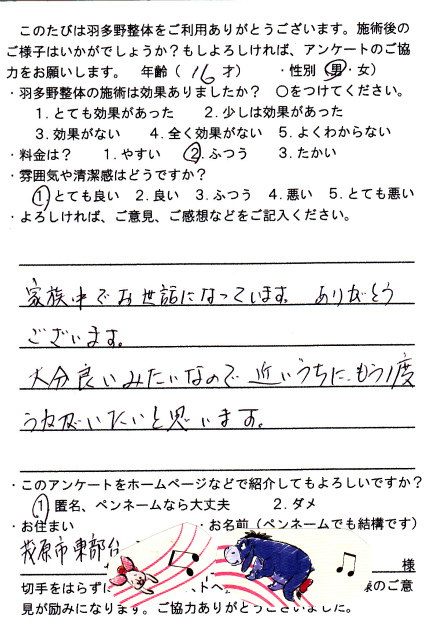 このたびは羽多野整体をご利用ありがとうございます。施術後の
ご様子はいかがでしょうか？もしよろしければ、アンケートのご協
力をお願いします。 年齢（ 16 才） ・性別（男・女）
・羽多野整体の施術は効果ありましたか？ ○をつけてください。
1. とても効果があった 2. 少しは効果があった
3. 効果がない 4. 全く効果がない 5. よくわからない
・料金は？ 1. やすい 2. ふつう 3. たかい
・雰囲気や清潔感はどうですか？
1 とても良い 2. 良い 3. ふつう 4. 悪い 5. とても悪い
・よろしければ、ご意見、ご感想などをご記入ください。
家族中でお世話になっています。 ありがとう
ございます。
大分良いみたいなので 近いうちに、もう1度
うかがいたいと思います。
・このアンケートをホームページなどで紹介してもよろしいですか？
1 匿名、ペンネームなら大丈夫 2. ダメ
・お住まい ・お名前（ペンネームでも結構です）
茂原市東部台 様
切手をはらずに ストへ 様のご意
見が励みになります。ご協力ありがとうございました。